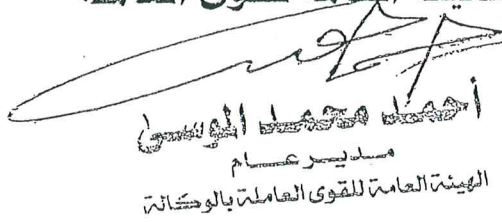 أحمد محمد الموسى
مديــر عـــام
الهيئة العامة للقوى العاملة بالوكالة